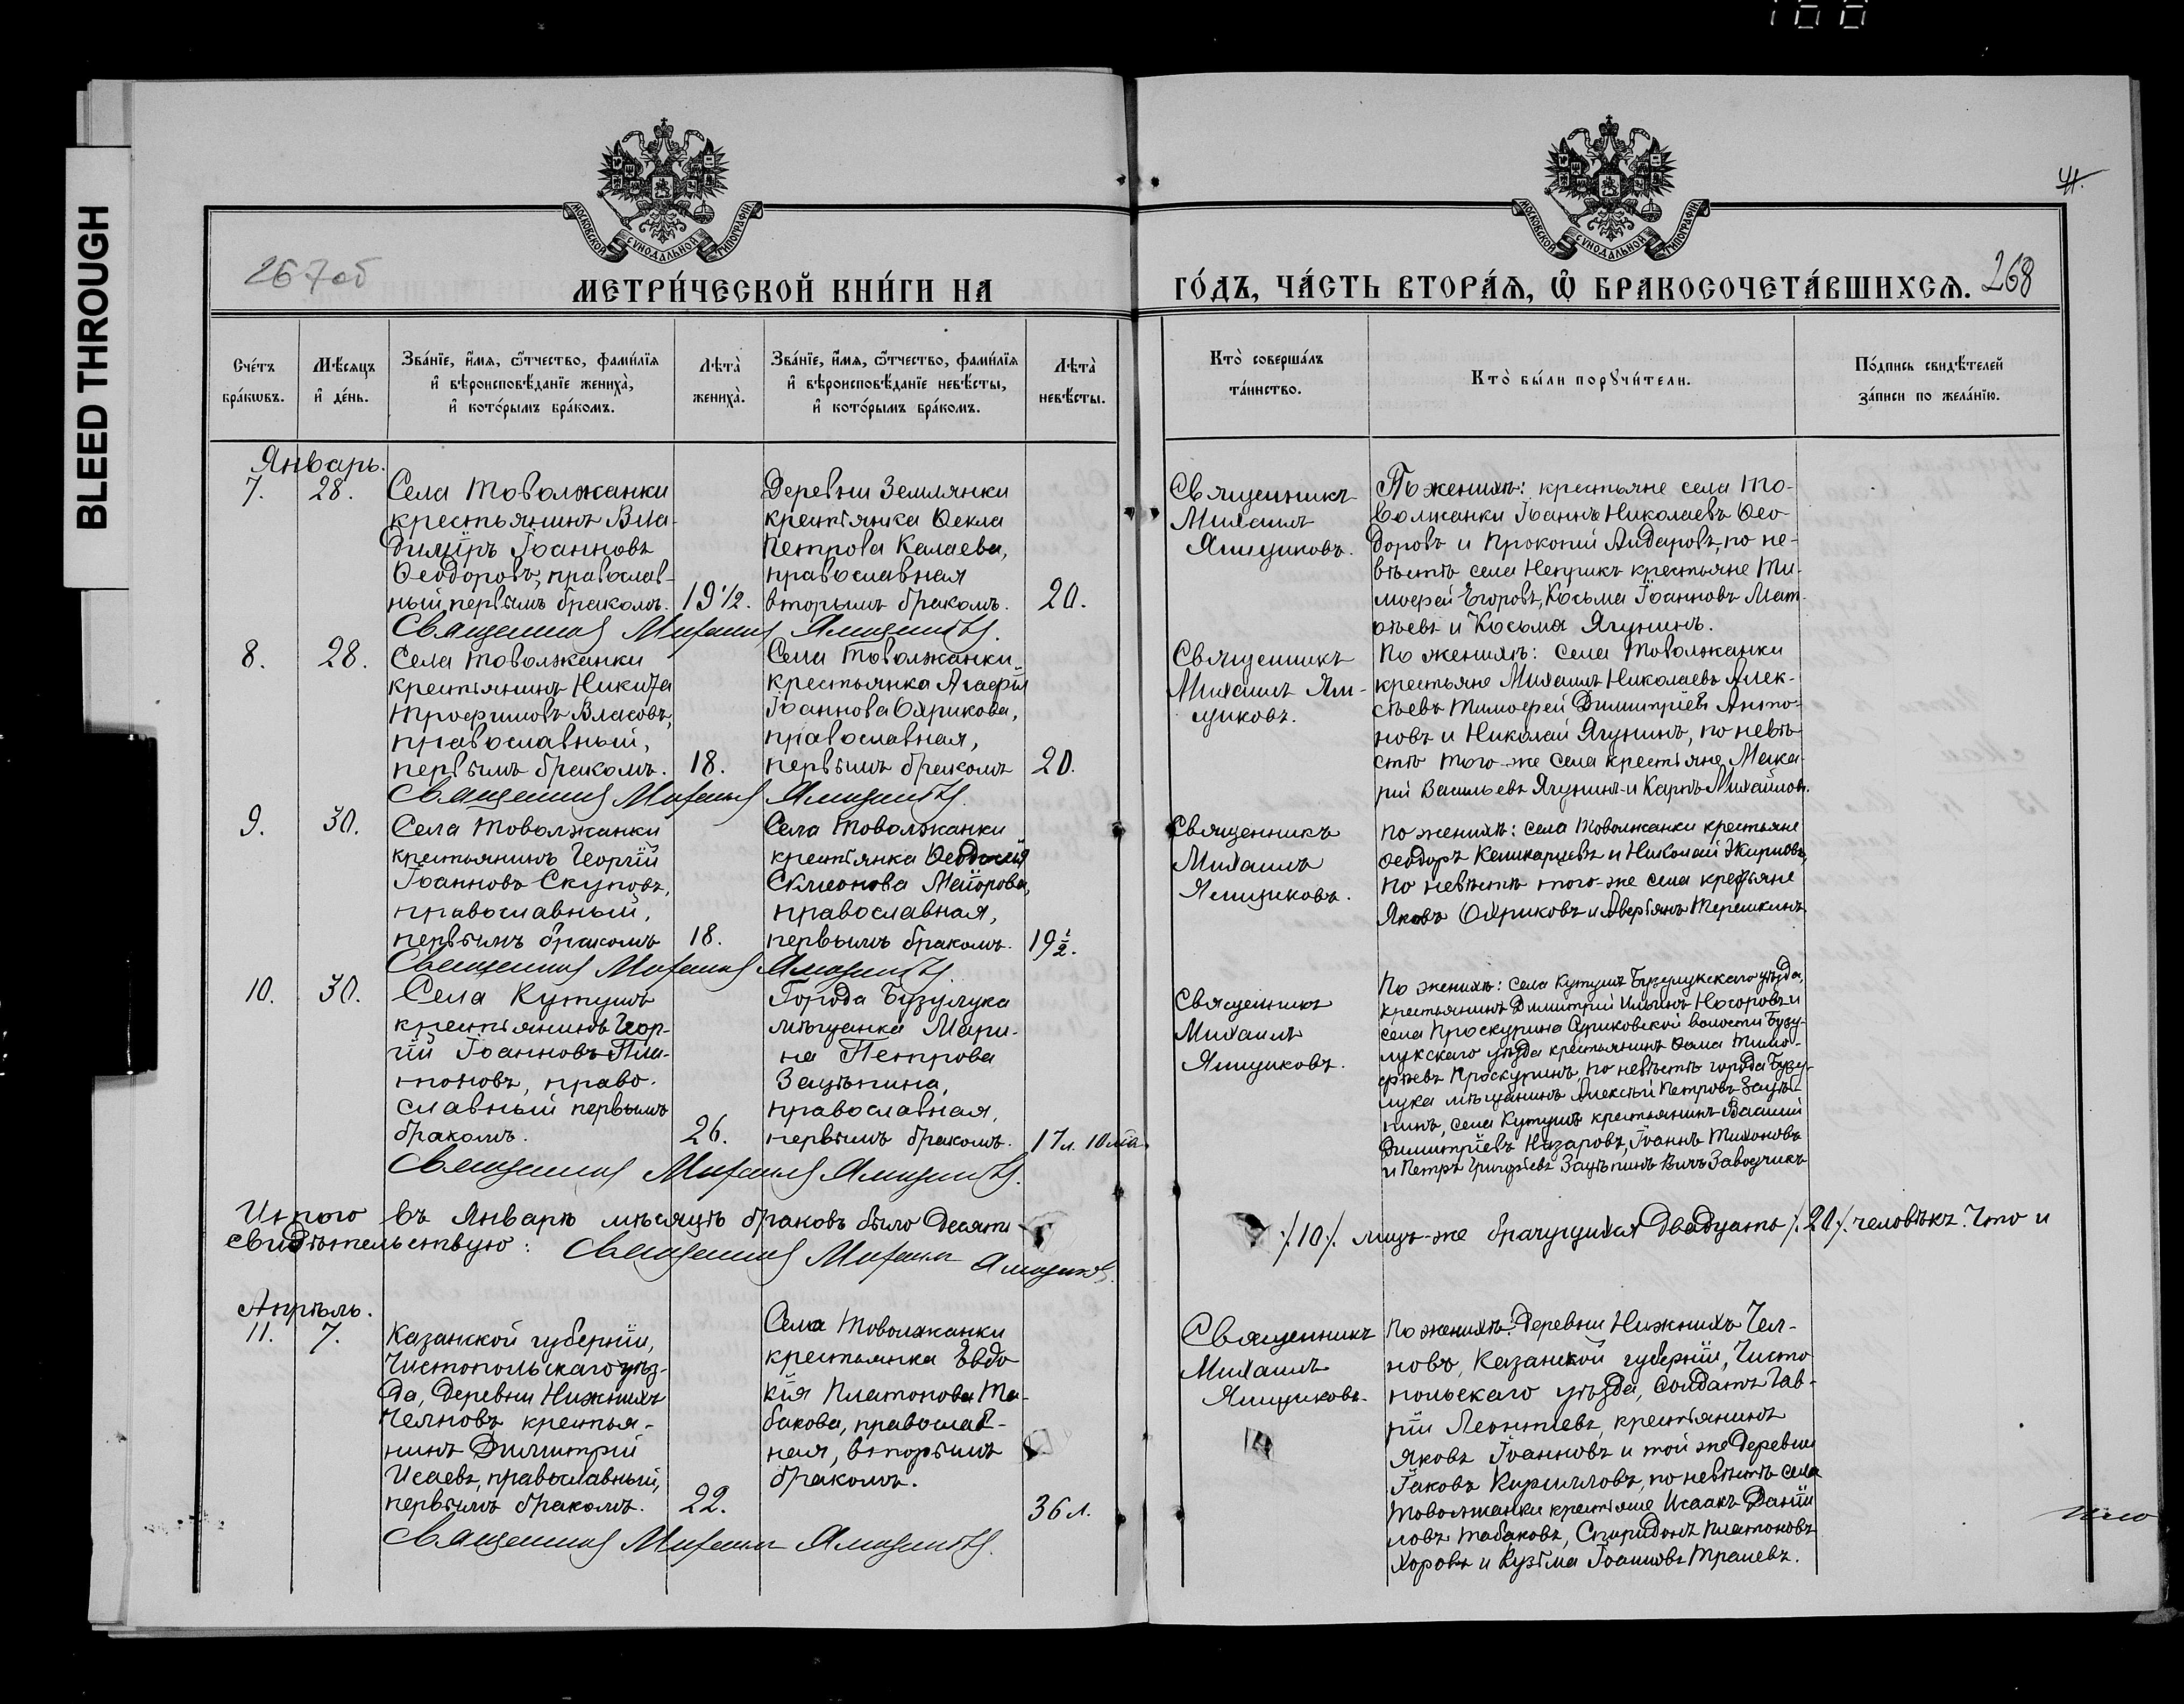 BLEED THROUGH
МОСКОВСКОЙ СѴНОДАЛЬНОЙ ТИПОГРАФІИ
МОСКОВСКОЙ СѴНОДАЛЬНОЙ ТИПОГРАФІИ
41.
267об
МЕТРИ́ЧЕСКОЙ КНИ́ГИ НА
ГО́ДЪ, ЧА́СТЬ ВТОРА́Ѧ, Ѽ БРАКОСОЧЕТА́ВШИХСѦ.
268
Сче́тъ бра́кѡвъ.
Мѣ́сяцъ и҆ де́нь.
Зва́нїе, и҆́мѧ, ѻ҆́тчество, фами́лїѧ
и҆ вѣроисповѣ́данїе жениха̀,
и҆ кото́рымъ бра́комъ.
Лѣта̀ жениха̀.
Зва́нїе, и҆́мѧ, ѻ҆́тчество, фами́лїѧ
и҆ вѣроисповѣ́данїе невѣ́сты,
и҆ кото́рымъ бра́комъ.
Лѣта̀ невѣ́сты.
Кто̀ соверша́лъ
та́инство.
Кто̀ бы́ли порꙋчи́тели.
По́дпись свидѣ́телей
за́писи по жела́нїю.
Январь.
7.
28.
Села Товолжанки
крестьянинъ Вла-
диміръ Іоанновъ
Ѳеодоровъ, православ-
ный, первымъ бракомъ.
19 1/2.
Деревни Землянки
крестьянка Ѳекла
Петрова Калаева,
православная
вторымъ бракомъ.
20.
Священникъ
Михаилъ
Ящиковъ.
По женихѣ: крестьяне села То-
волжанки Іоаннъ Николаевъ Ѳео-
доровъ и Прокопій Айдаровъ, по не-
вѣстѣ села крестьяне Ти-
моѳей Егоровъ, Косьма Іоанновъ Мат-
ѳѣевъ и Косьма Ягунинъ.
Священникъ Михаилъ Ящиковъ.
8.
28.
Села Товолжанки
крестьянинъ Никита
Трофимовъ Власовъ,
православный,
первымъ бракомъ.
18.
Села Товолжанки
крестьянка Агафія
Іоаннова Охрикова,
православная,
первымъ бракомъ
20.
Священникъ
Михаилъ Ящ-
иковъ.
По женихѣ: села Товолжанки
крестьяне Михаилъ Николаевъ Алек-
сѣевъ Тимоѳей Димитріевъ Анто-
новъ и Николай Ягунинъ, по невѣ-
стѣ того-же села крестьяне Мака-
рій Васильевъ Ягунинъ и Карпъ Михайловъ.
Священникъ Михаилъ Ящиковъ.
9.
30.
Села Товолжанки
крестьянинъ Георгій
Іоанновъ Скуповъ,
православный,
первымъ бракомъ
18.
Села Товолжанки
крестьянка Ѳеодосія
Симеонова Маіорова,
православная,
первымъ бракомъ.
19 1/2.
Священникъ
Михаилъ
Ящиковъ.
По женихѣ: села Товолжанки крестьяне
Ѳеодоръ и Николай Жирновъ,
по невѣстѣ того-же села крестьяне
Яковъ Охриковъ и Аверьянъ Терешкинъ.
Священникъ Михаилъ Ящиковъ.
10.
30.
Села Кутушъ
крестьянинъ Геор-
гій Іоанновъ Пла-
тоновъ, право-
славный первымъ
бракомъ.
26.
Города Бузулука
мѣщанка Мари-
на Петрова
Зацѣпина,
православная,
первымъ бракомъ.
17 л. 10 м.
Священникъ
Михаилъ
Ящиковъ.
По женихѣ: села Кутушъ Бузулукскаго уѣзда,
крестьянинъ Димитрій Ильинъ и
села Проскурина волости Бузу-
лукскаго уѣзда крестьянинъ Ѳома Тимо-
фѣевъ Проскуринъ, по невѣстѣ города Бузу-
лука мѣщанинъ Алексѣй Петровъ Зацѣ-
пинъ, села Кутушъ крестьянинъ Василій
Димитріевъ Назаровъ, Іоаннъ Тихоновъ
и Петръ Григорьевъ Зацѣпинъ Заводчикъ
Священникъ Михаилъ Ящиковъ.
Итого въ Январѣ мѣсяцѣ браковъ было десять /10/. лицъ-же брачущихся двадцать /20/. человѣкъ. Что и
свидѣтельствую: Священникъ Михаилъ Ящиковъ.
Апрѣль.
11.
7.
Казанской губерніи,
Чистопольскаго уѣз-
да, деревни Нижнихъ
Челновъ крестья-
нинъ Димитрій
Исаевъ, православный,
первымъ бракомъ.
22.
Села Товолжанки
крестьянка Евдо-
кія Платонова Та-
бакова, православ-
ная, вторымъ
бракомъ.
36 л.
Священникъ
Михаилъ
Ящиковъ.
По женихѣ: деревни Нижнихъ Чел-
новъ, Казанской губерніи, Чисто-
польскаго уѣзда, солдатъ Гав-
ріи Леонтіевъ, крестьянинъ
Яковъ Іоанновъ и той же деревни
Іаковъ Кирилловъ, по невѣстѣ села
Товолжанки крестьяне Исаакъ Даніи-
ловъ Табаковъ, Спиридонъ Платоновъ
Хоровъ и Кузьма Іоанновъ Траневъ.
Священникъ Михаилъ Ящиковъ.